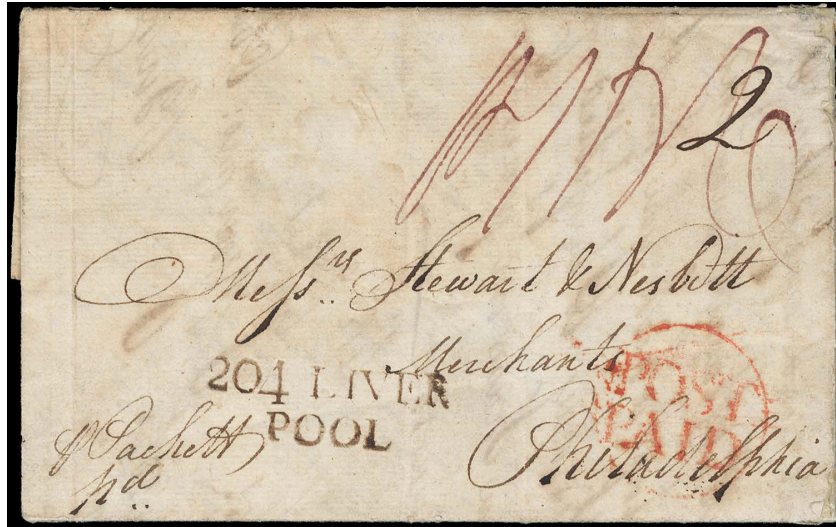 2
Messrs. Stewart & Nesbitt
Merchants
204 LIVER
POOL
POST
PAID
Philadelphia
p Packett
pd.